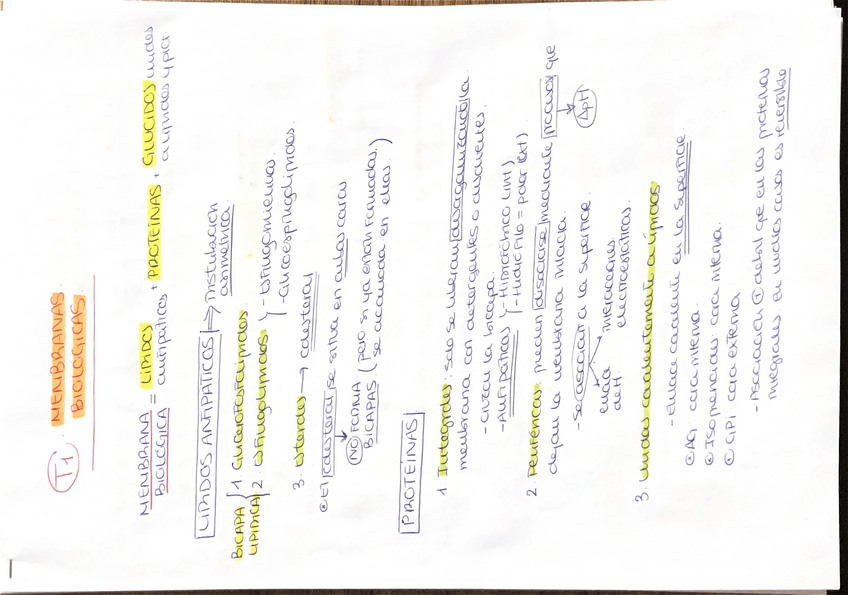 T1. MEMBRANAS
BIOLÓGICAS.
MEMBRANA = LÍPIDOS + PROTEÍNAS + GLÚCIDOS unidos
BIOLÓGICA anfipáticos a lípidos y prot
LÍPIDOS ANFIPÁTICOS → Distribución
asimétrica.
BICAPA LIPÍDICA
1. Glicerofosfolípidos
2. Esfingolípidos - Esfingomielinas
- Glucoesfingolípidos.
3. Esteroles → colesterol
El colesterol se sitúa en ambas caras
NO FORMA (pero si ya están formadas,
BICAPAS se acomoda en ellas)
PROTEÍNAS
1 Integrales: solo se liberan desorganizándola
membrana con detergentes o disolventes.
- Cruzan la bicapa.
- Anfipáticas - Hidrofóbico (int)
- Hidrófilo = polar (Ext)
2. Periféricas: pueden disociarse mediante procesos que
dejan la membrana intacta. ΔpH
- Se asocian a la superficie.
enlace interacciones
de H. electroestáticas.
3. Unidas covalentemente a lípidos
- Enlace covalente en la superficie.
AG: cara interna.
Isoprenoides: cara interna.
GPI: cara externa
- Asociación + débil que en las proteínas
integrales. En muchos casos es reversible